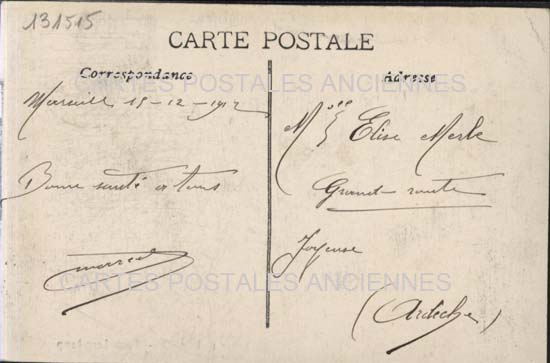 131515
CARTE POSTALE
Correspondance
Marseille 15-12-1912
Bonne santé à tous
Adresse
Mlle Elise Merle
Grand-route
Joyeuse
(Ardèche)
CARTES POSTALES ANCIENNES
CARTES POSTALES ANCIENNES